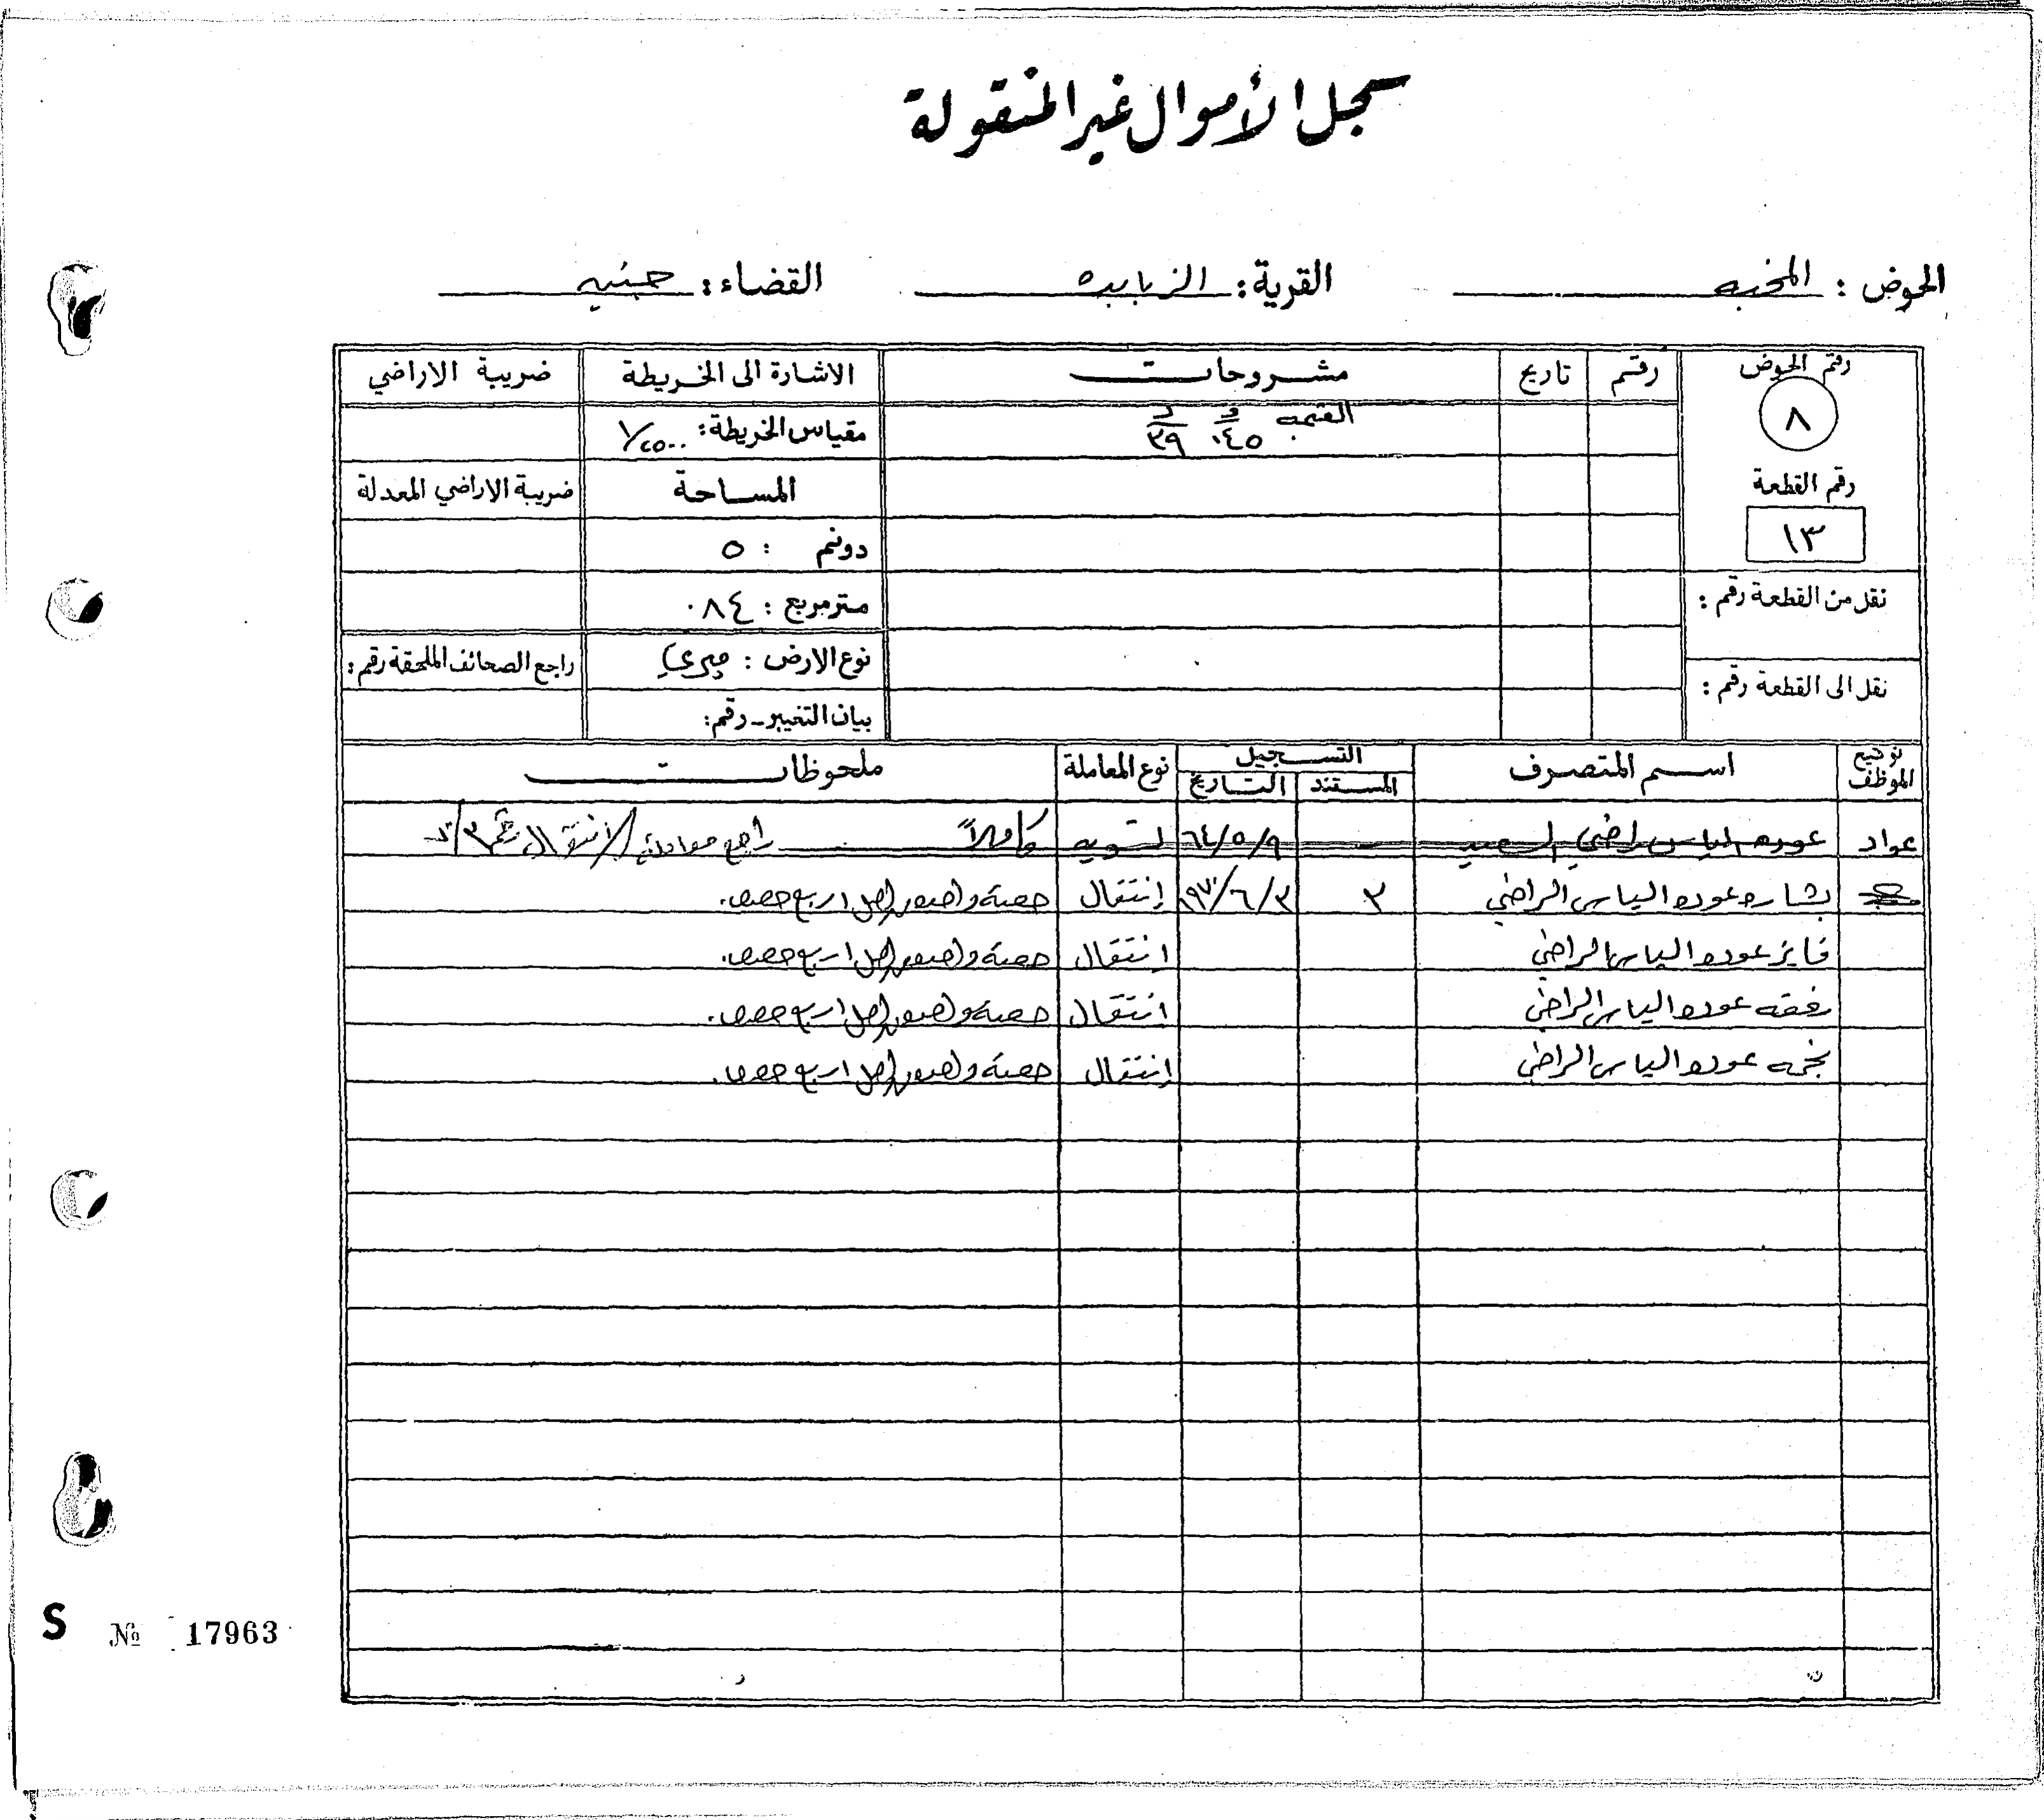 سجل الأموال غير المنقولة
الحوض : المخبه القرية : الزبابده القضاء : جنين
رقم الحوض رقم تاريخ مشروحات الاشارة الى الخريطة ضريبة الاراضي
٨ القيمه مقياس الخريطة : ١/٢٥٠٠
د
٣٩
٠٤٥
رقم القطعة المساحة ضريبة الاراضي المعدلة
١٣ دونم : ٥
نقل من القطعة رقم : متر مربع : ٠٨٤
نوع الارض : ميري راجع الصحائف الملحقة رقم :
نقل الى القطعة رقم : بيان التغيير - رقم :
توقيع الموظف اسم المتصرف التسجيل نوع المعاملة ملحوظات
المستند التاريخ
عواد عوده الياس راضي السعيد ٦٤/٥/٩ تسويه كاملاً راجع معاملة الانتقال رقم
بشاره عوده الياس الراضي ٣ ٩٧٠/٦/٣ إنتقال حصة واحدة من اصل اربع حصص.
فايز عوده الياس الراضي انتقال حصة واحدة من اصل اربع حصص.
رفقه عوده الياس الراضي انتقال حصة واحدة من اصل اربع حصص.
نجمه عوده الياس الراضي إنتقال حصة واحدة من اصل اربع حصص.
S № 17963